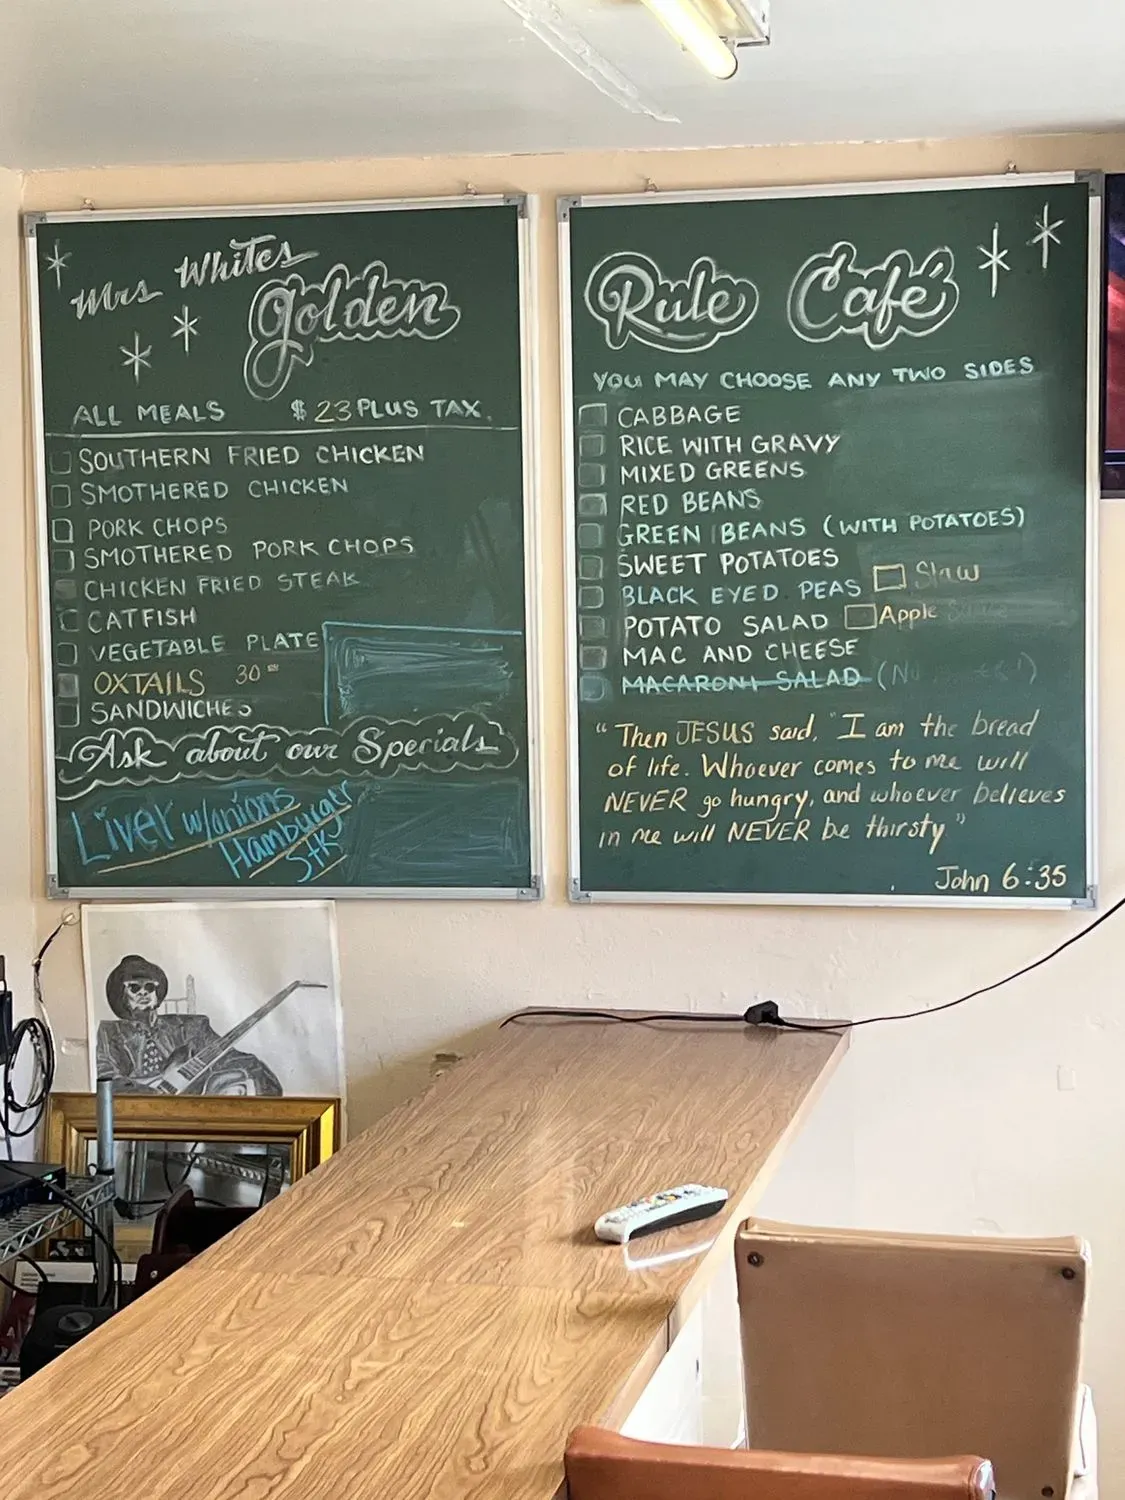 Mrs Whites
Golden
ALL MEALS $23 PLUS TAX.
SOUTHERN FRIED CHICKEN
SMOTHERED CHICKEN
PORK CHOPS
SMOTHERED PORK CHOPS
CHICKEN FRIED STEAK
CATFISH
VEGETABLE PLATE
OXTAILS 30⁰⁰
SANDWICHES
Ask about our Specials
Liver w/onions
Hamburger
Stk
Rule Café
YOU MAY CHOOSE ANY TWO SIDES
CABBAGE
RICE WITH GRAVY
MIXED GREENS
RED BEANS
GREEN BEANS (WITH POTATOES)
SWEET POTATOES
BLACK EYED PEAS Slaw
POTATO SALAD Apple
MAC AND CHEESE
MACARONI SALAD
"Then JESUS said, "I am the bread
of life. Whoever comes to me will
NEVER go hungry, and whoever believes
in me will NEVER be thirsty"
John 6:35